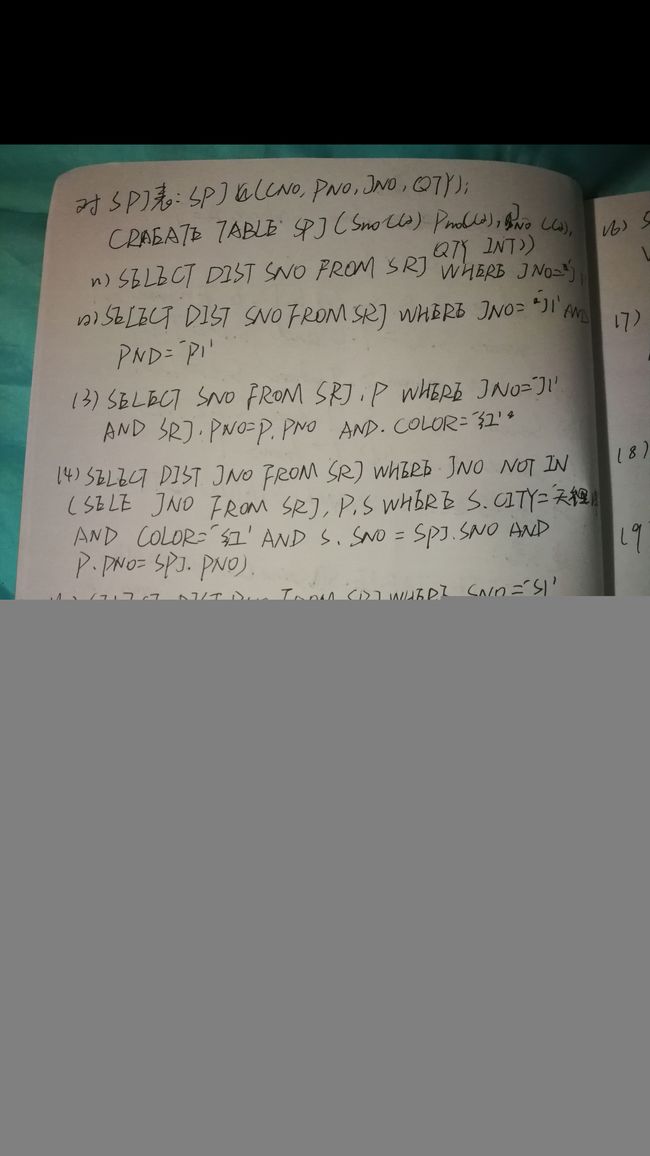 对SPJ表: SPJ (SNO, PNO, JNO, QTY);
CRAEATE TABLE SPJ (Sno C(2) Pno C(2), JNO C(2),
QTY INT))
1) SELECT DIST SNO FROM SRJ WHERE JNO='J1
2) SELECT DIST SNO FROM SRJ WHERE JNO='J1' AND
PNO='P1'
(3) SELECT SNO FROM SRJ, P WHERE JNO='J1'
AND SRJ.PNO=P.PNO AND. COLOR='红'
(4) SELECT DIST JNO FROM SRJ WHERE JNO NOT IN
(SELE JNO FROM SRJ, P.S WHERE S.CITY='天
AND COLOR='红' AND S.SNO=SPJ.SNO AND
P.PNO=SPJ.PNO).
DIST FROM SRJ WHERE SNO='S1'
16) S
17)
18)
19